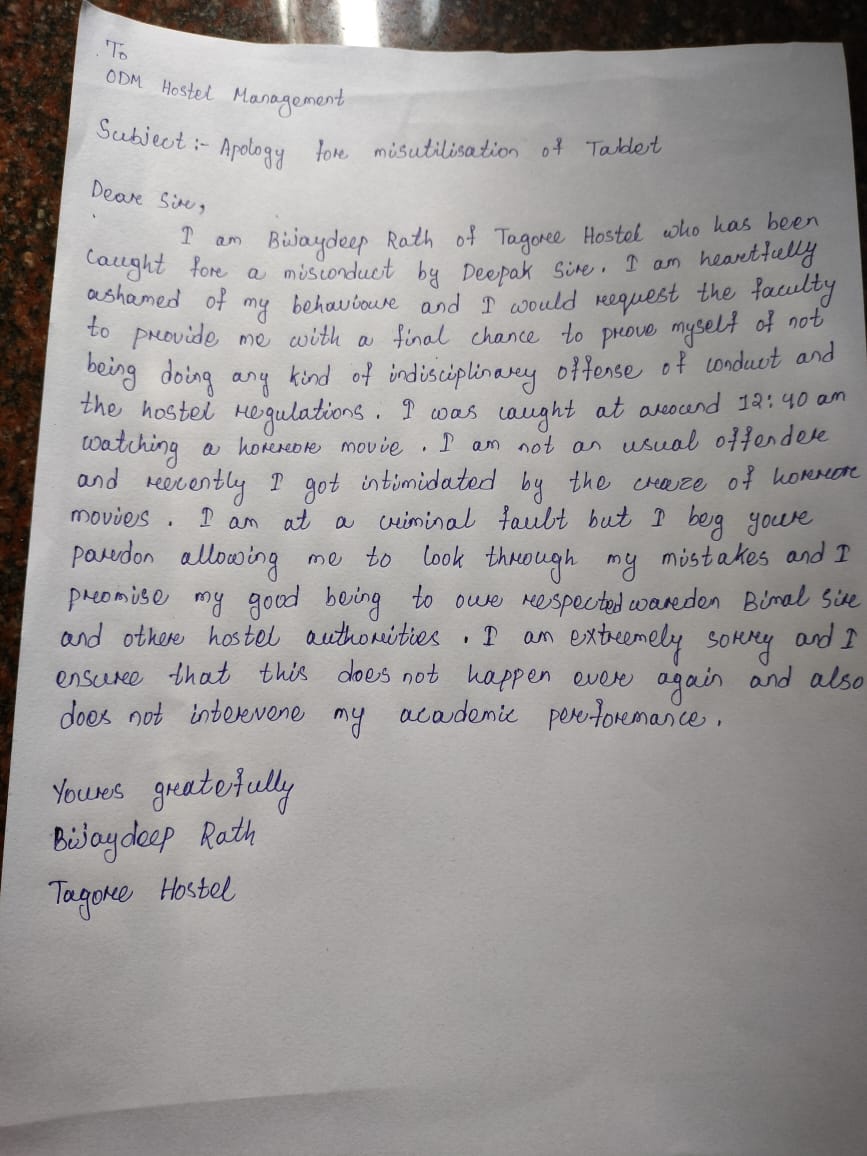 To
ODM Hostel Management
Subject :- Apology for misutilisation of Tablet
Dear Sir,
I am Bijaydeep Rath of Tagore Hostel who has been
caught for a misconduct by Deepak Sir. I am heartfully
ashamed of my behaviour and I would request the faculty
to provide me with a final chance to prove myself of not
being doing any kind of indisciplinary offense of conduct and
the hostel regulations. I was caught at around 12:40 am
watching a horror movie. I am not an usual offender
and recently I got intimidated by the craze of horror
movies. I am at a criminal fault but I beg your
pardon allowing me to look through my mistakes and I
promise my good being to our respected warden Bimal Sir
and other hostel authorities. I am extremely sorry and I
ensure that this does not happen ever again and also
does not intervene my academic performance.
Yours gratefully
Bijaydeep Rath
Tagore Hostel